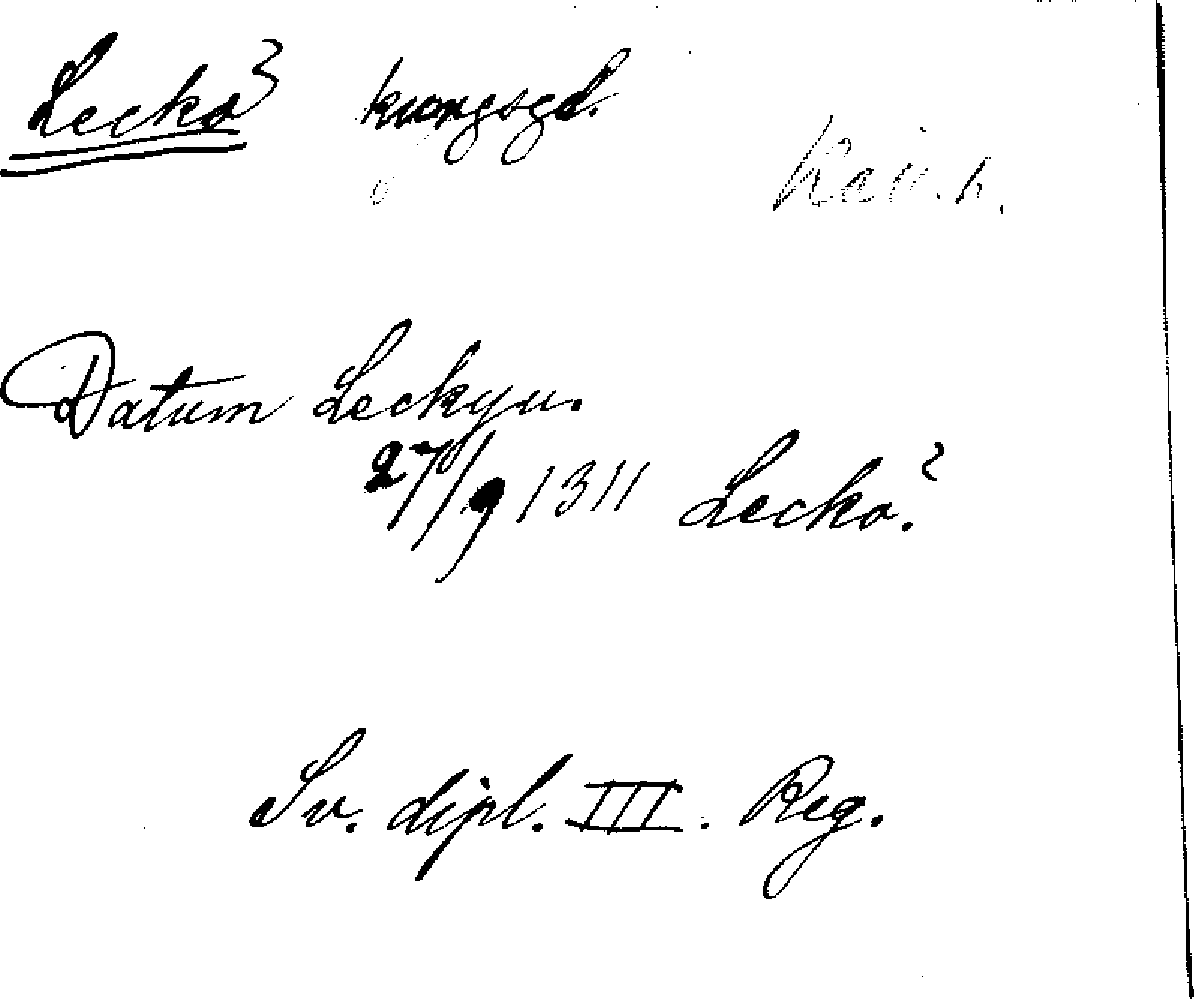 Lecko? kungsgd.
Datum Leckyu.
27/9 1311 Lecko?
Sv. dipl. III. Reg.